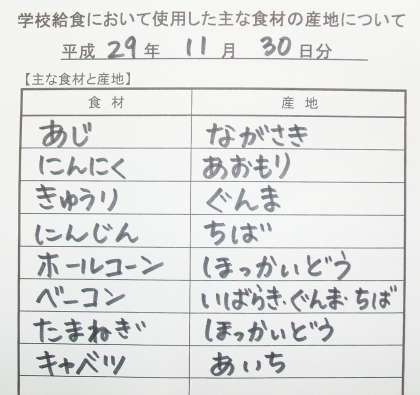 学校給食において使用した主な食材の産地について
平成 29 年 11 月 30 日分
【主な食材と産地】
食材 産地
あじ ながさき
にんにく あおもり
きゅうり ぐんま
にんじん ちば
ホールコーン ほっかいどう
ベーコン いばらき・ぐんま・ちば
たまねぎ ほっかいどう
キャベツ あいち